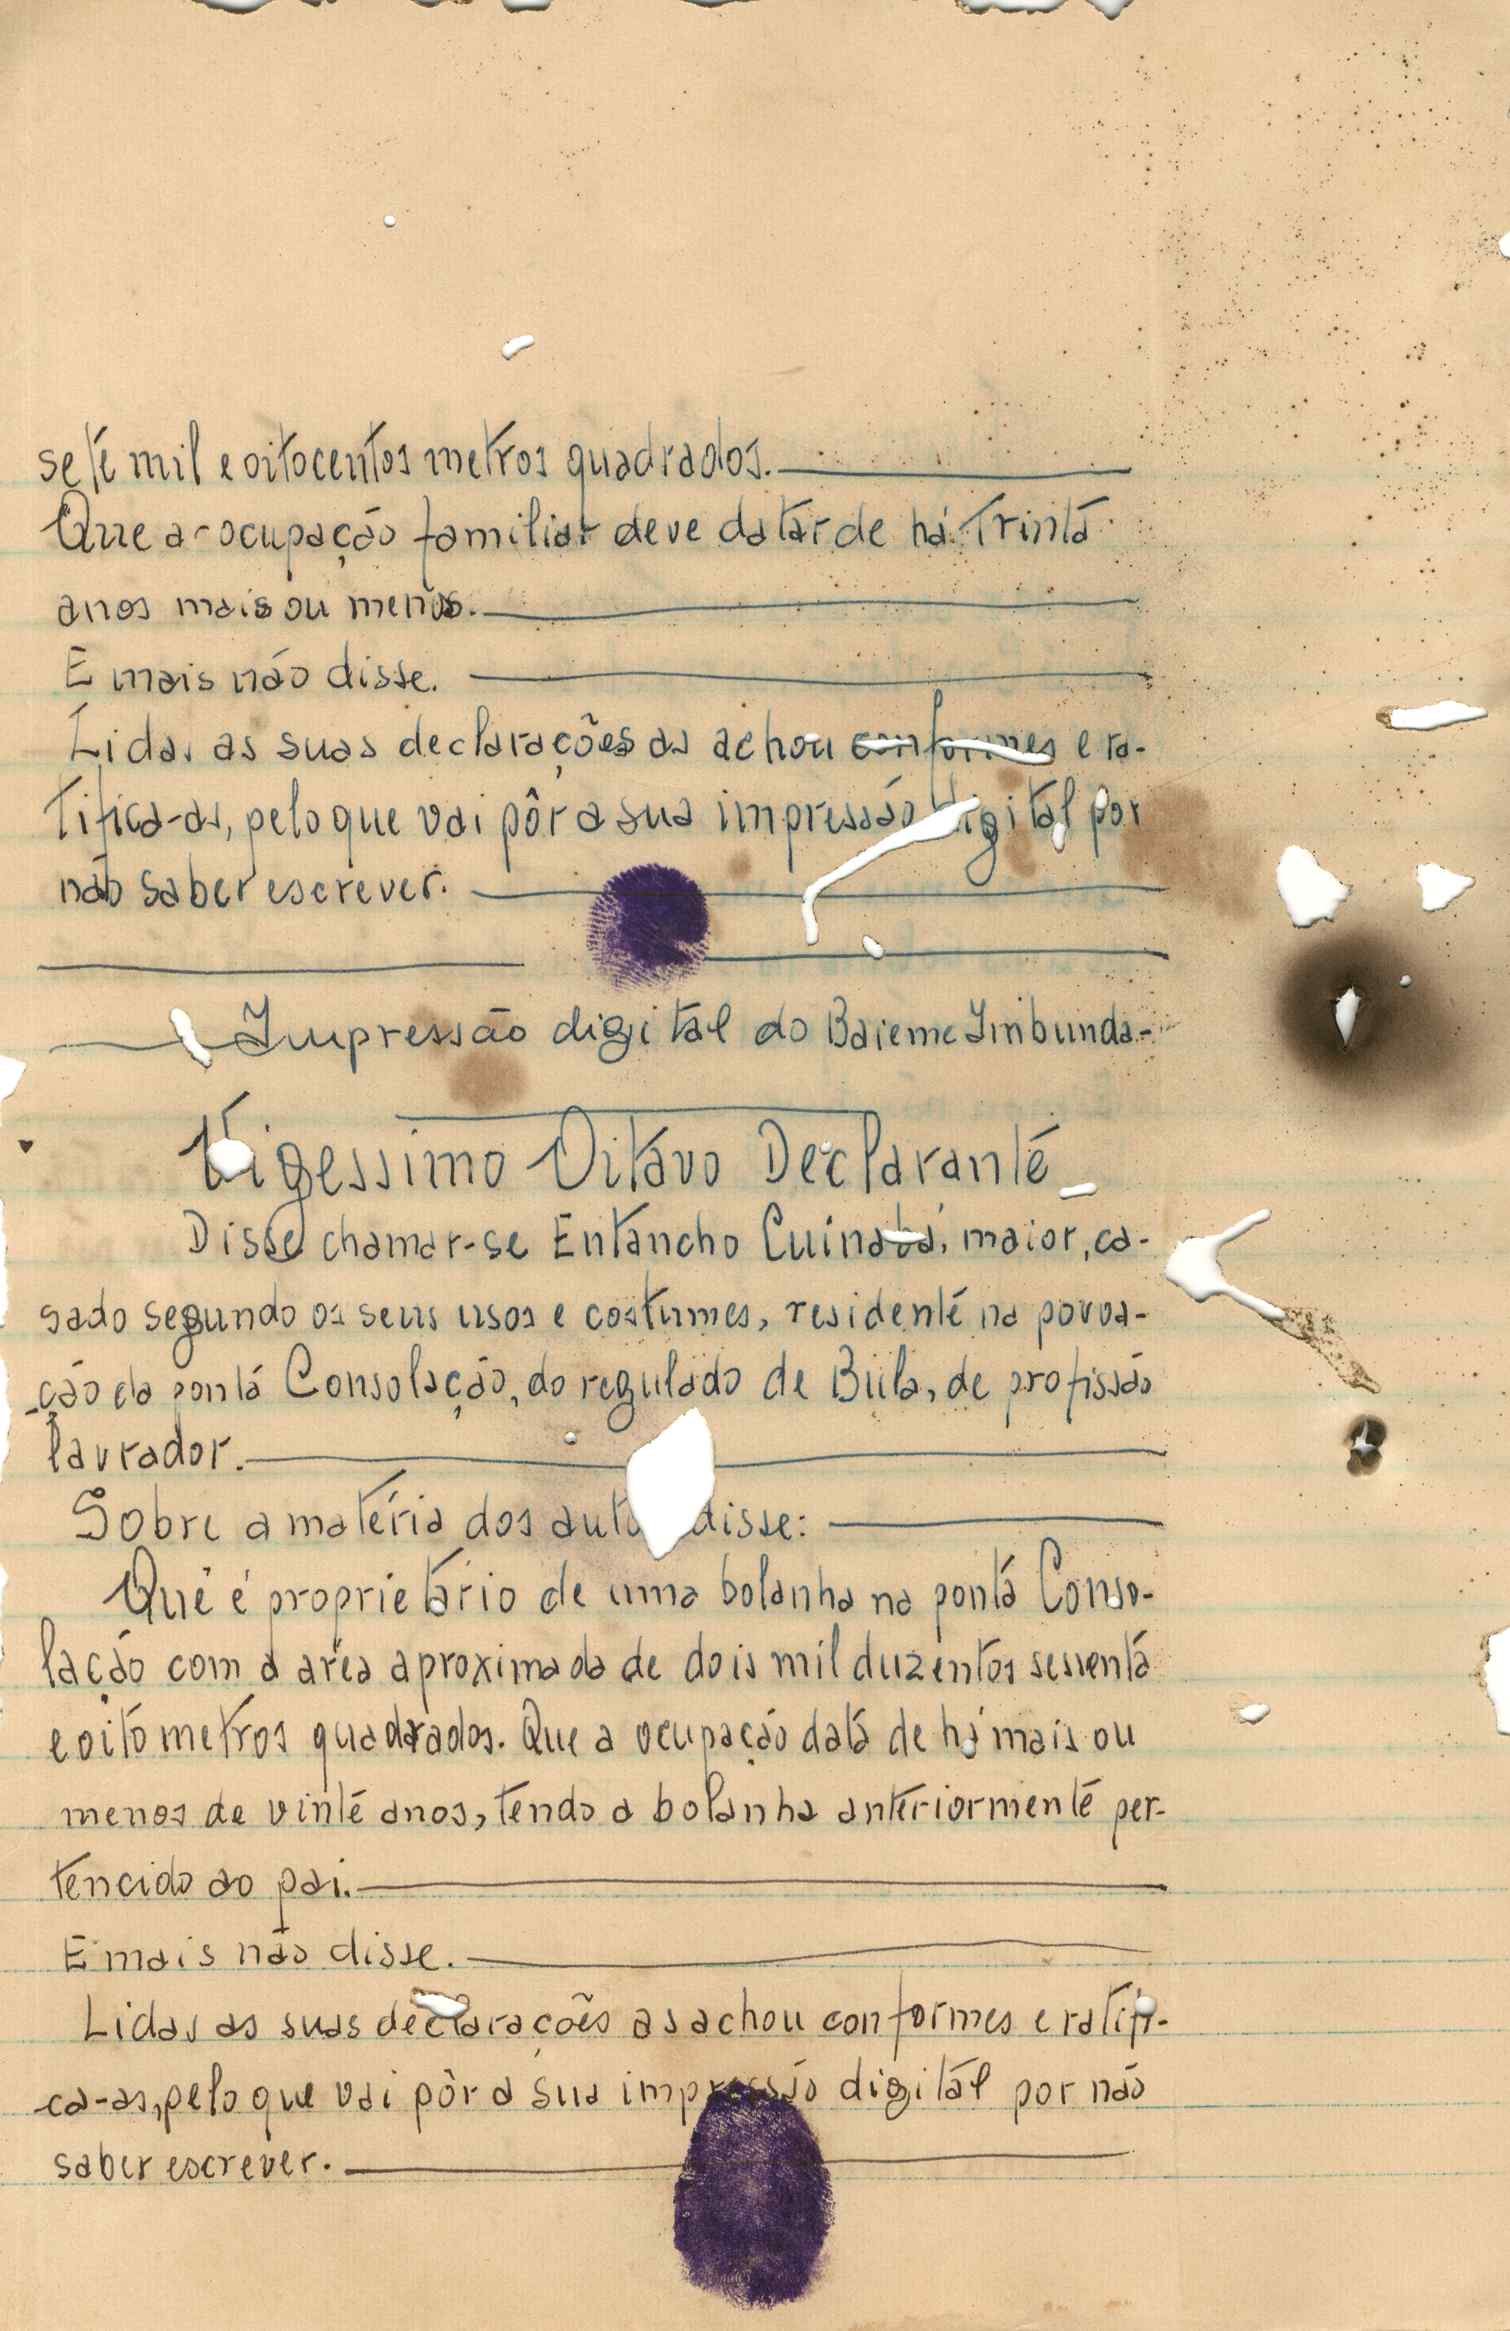 sete mil e oitocentos metros quadrados.
Que a ocupação familiar deve datar de há trinta
anos mais ou menos.
E mais não disse.
Lidas as suas declarações as achou conformes e ra-
tifica-as, pelo que vai pôr a sua impressão digital por
não saber escrever.
Impressão digital do Baieme Imbunda.-
Vigessimo Oitavo Declarante
Disse chamar-se Entancho Cuinabá, maior, ca-
sado segundo os seus usos e costumes, residente na povoa-
-ção da ponta Consolação, do regulado de Biila, de profissão
lavrador.
Sobre a matéria dos autos disse:
Que é proprietário de uma bolanha na ponta Conso-
lação com a aréa aproximada de dois mil duzentos sessenta
e oito metros quadrados. Que a ocupação data de há mais ou
menos de vinte anos, tendo a bolanha anteriormente per-
tencido ao pai.
E mais não disse.
Lidas as suas declarações as achou conformes e ratifi-
ca-as, pelo que vai pôr a sua impressão digital por não
saber escrever.